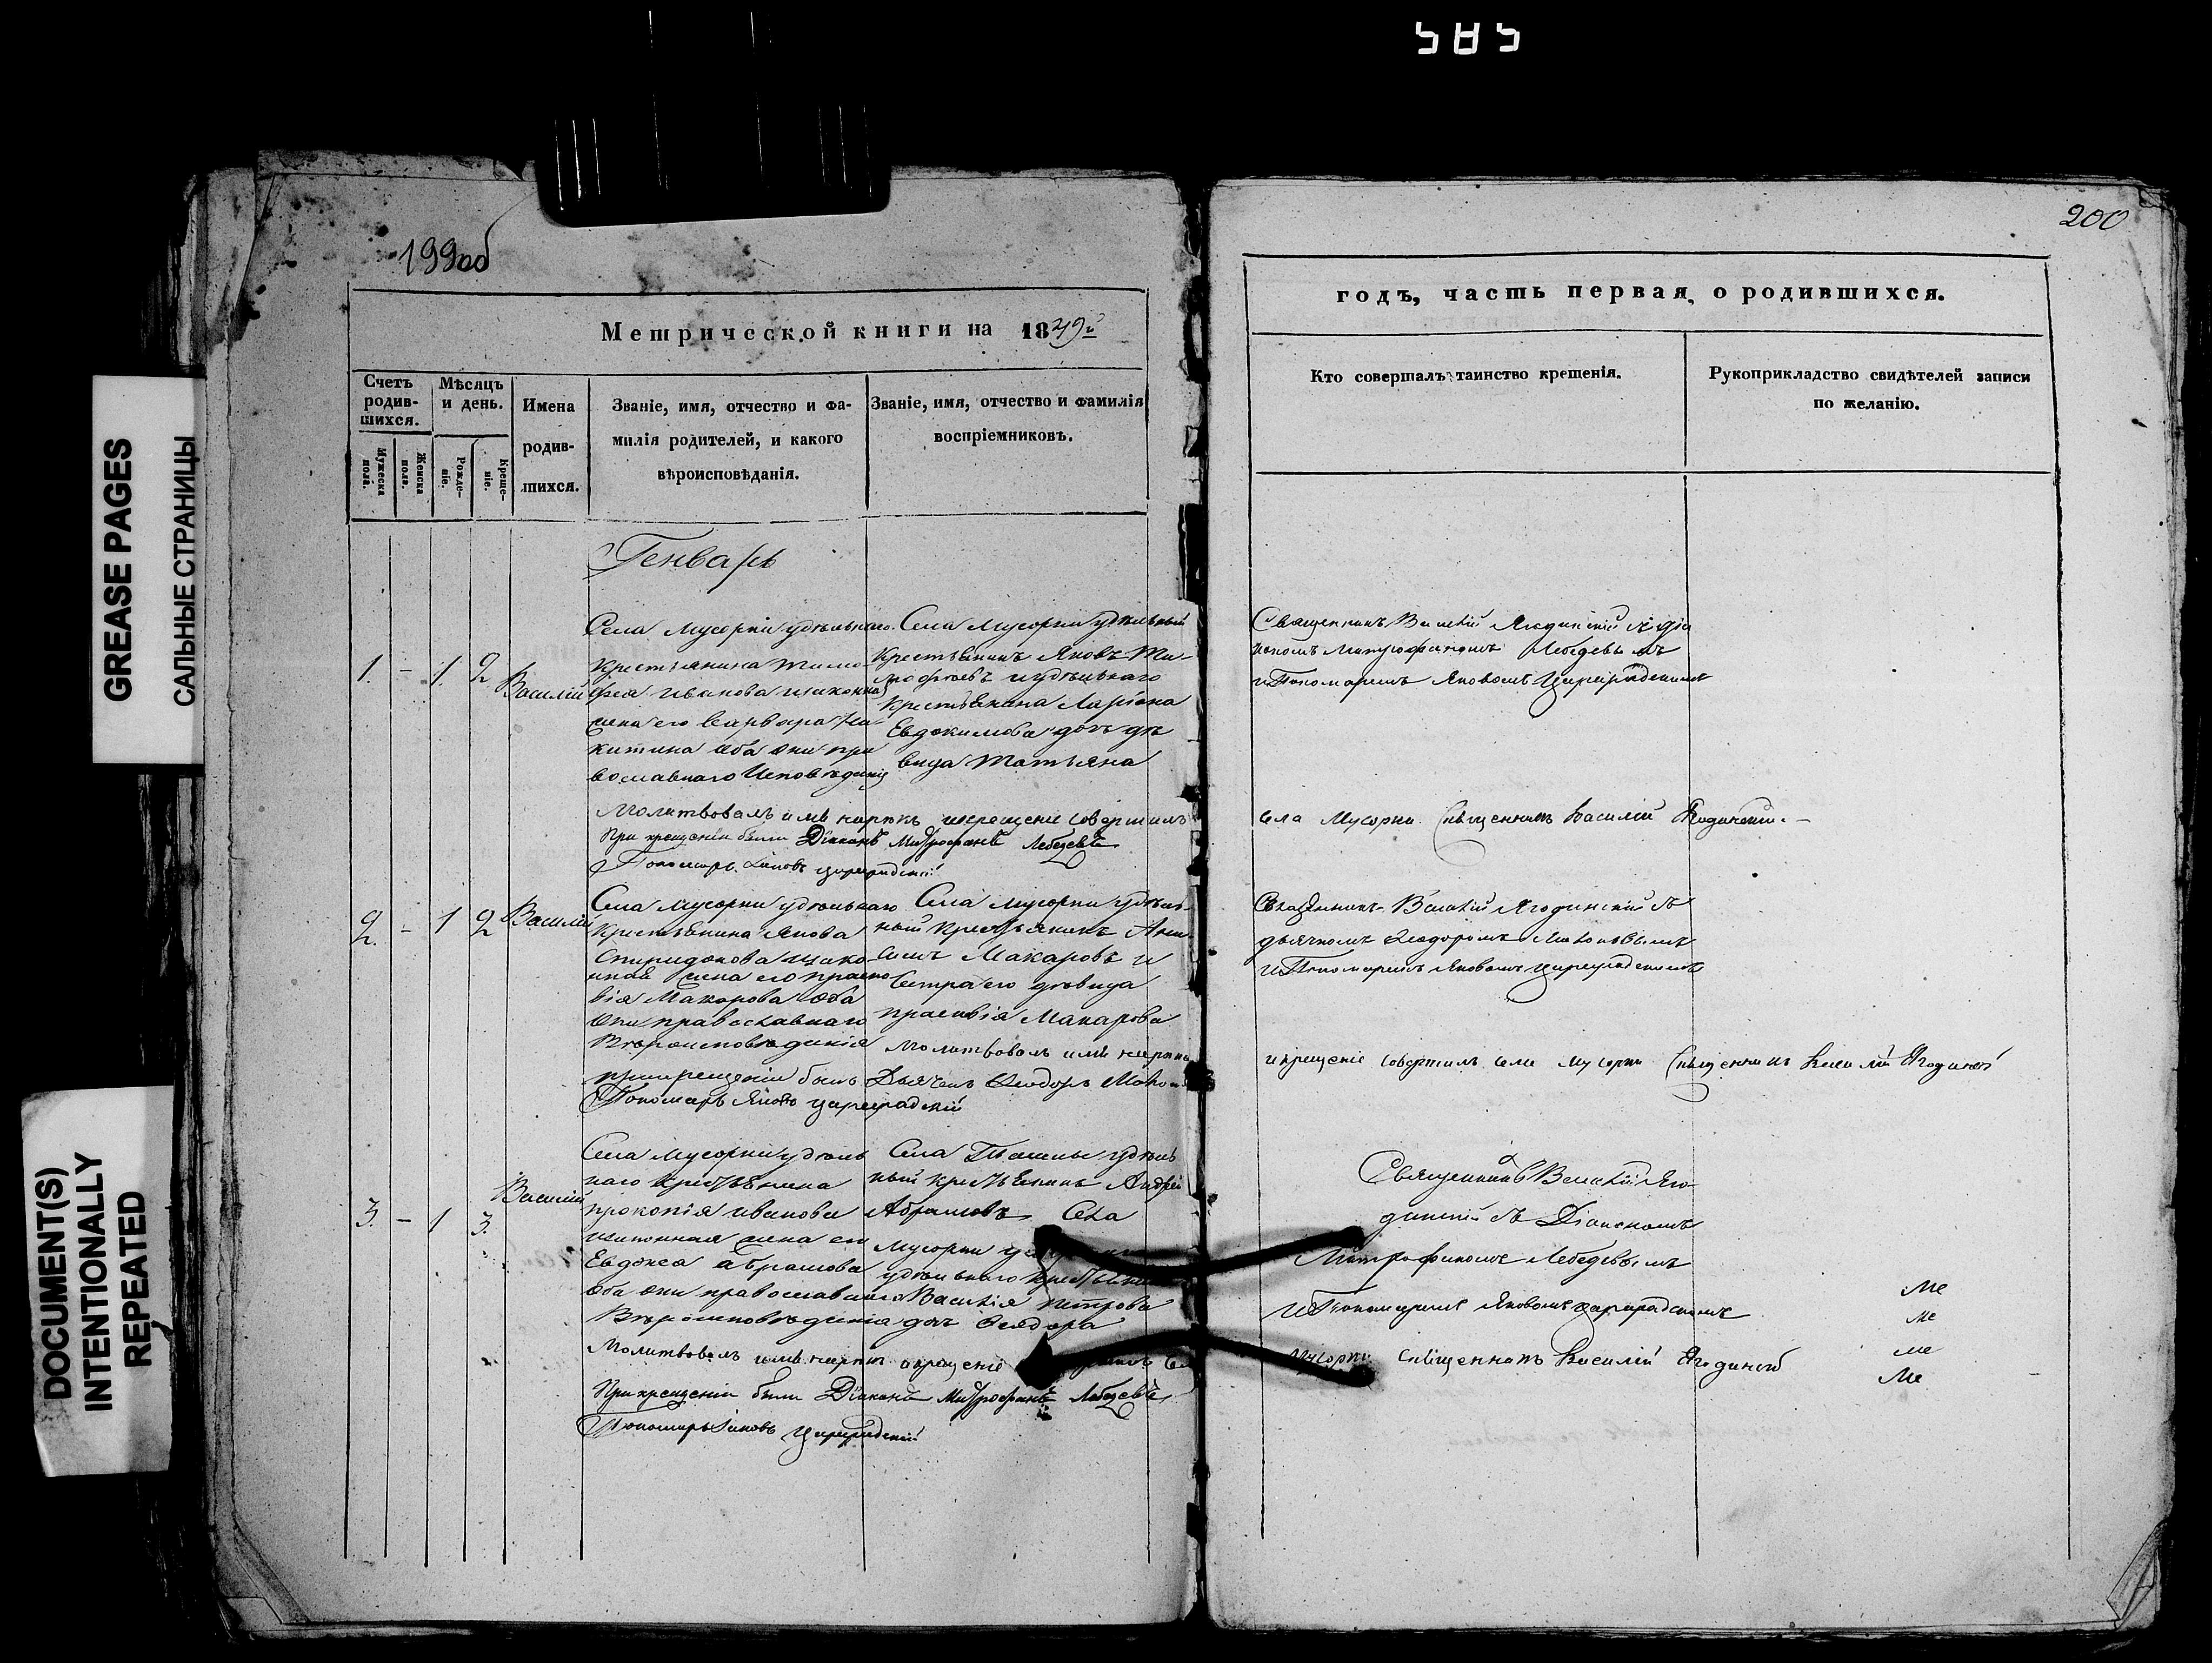 585
GREASE PAGES
САЛЬНЫЕ СТРАНИЦЫ
DOCUMENT(S)
INTENTIONALLY
REPEATED
199об
Метрической книги на 1849й
Счетъ родив-
шихся.
Мѣсяцъ
и день.
Мужеска
пола.
Женска
пола.
Рожде-
ніе.
Креще-
ніе.
Имена
родив-
шихся.
Званіе, имя, отчество и фа-
милія родителей, и какого
вѣроисповѣданія.
Званіе, имя, отчество и фамилія
воспріемниковъ.
Генварь
1. - 1. 2 Василій
Села Мусорки удѣльнаго
крестьянина Тимо-
фея Иванова и законная
жена его Варвара Ни-
китина оба они пра
вославнаго Исповѣданія
Села Мусорки удѣльный
крестьянинъ Яковъ Ти-
мофѣевъ и удѣльнаго
крестьянина Ларіона
Евдокимова дочь дѣ
вица Татьяна
Молитвовалъ имя нарекъ и крещеніе совершилъ
При крещеніи были Діаконъ Митрофанъ Лебедевъ
Пономарь Іаковъ Цареградскій
2. - 1 2 Василій
Села Мусорки удѣльнаго
крестьянина Якова
Спиридонова и зако
нная жена его Праско
вія Макарова оба
они православнаго
Вѣроисповѣданія
Села Мусорки удѣль-
ный крестьянинъ
Макаровъ и
сестра его дѣвица
Прасковія Макарова
Молитвовалъ имя нарекъ
при крещеніи былъ Дьячекъ Ѳеодоръ
Пономарь Яковъ Цареградскій
3. - 1 3. Василій
Села Мусорки удѣль
наго крестьянина
Прокопія Иванова
и законная жена его
Евдокеа Абрамова
оба они православнаго
Вѣроисповѣданія
Села Ташлы удѣль
ный крестьянинъ Андрей
Абрамовъ Села
Мусорки
удѣльнаго
Василія Петрова
дочь Ѳеодора
Молитвовалъ имя нарекъ и крещеніе
При крещеніи были Діаконъ Митрофанъ Лебедевъ
Пономарь Іаковъ Цареградскій
200
годъ, часть первая, о родившихся.
Кто совершалъ таинство крещенія.
Рукоприкладство свидѣтелей записи
по желанію.
Священникъ Василій Ягодинскій с діа
кономъ Митрофаномъ Лебедевымъ
и Пономаремъ Яковомъ Цареградскимъ
села Мусорки Священникъ Василій Ягодинскій.
Священникъ Василій Ягодинскій съ
дьячкомъ Ѳеодоромъ
и Пономаремъ Яковомъ Цареградскимъ
и крещеніе совершилъ села Мусорки Священникъ Василій Ягодинскій
Священникъ Василій Яго
динскій съ Діакономъ
Митрофаномъ Лебедевымъ
и Пономаремъ Яковомъ Цареградскимъ
Мусорки Священникъ Василій Ягодинскій